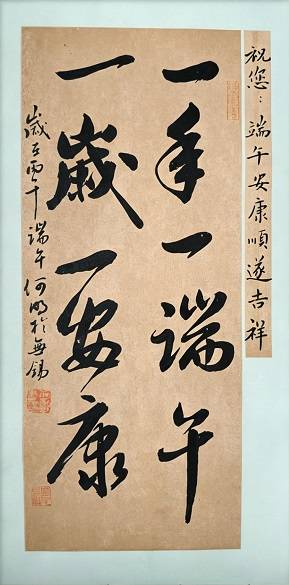 祝您：端午安康順遂吉祥
一年一端午
一歲一安康
歲在丙午端午何明於無錫